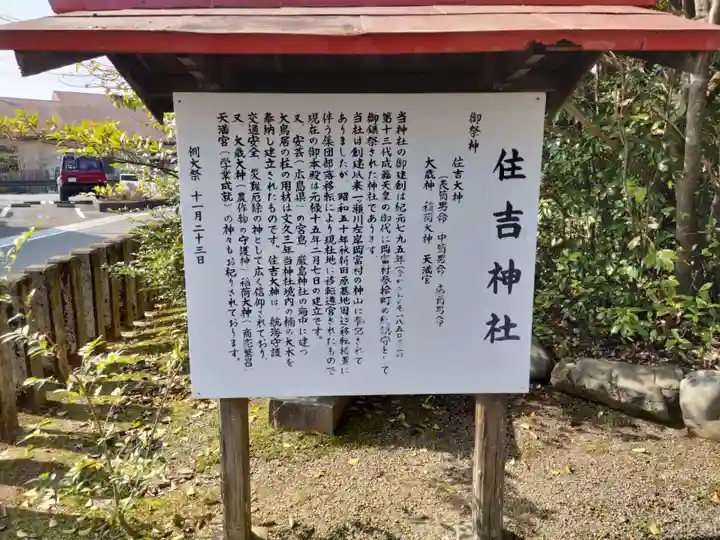 住吉神社
御祭神
住吉大神
（表筒男命　中筒男命　底筒男命）
大歳神　稲荷大神　天満宮
当神社の御建創は紀元七九五年
第十三代成務天皇の御代に岡富村
御鎮祭された神社であります。
当社は創建以来一瀬川左岸岡富村の神山に奉祀されて
ありましたが　昭和五十年秋新田原基地周辺移転措置に
伴う集団部落移転により現社地に移転遷宮されたもので
現在の御本殿は元禄十五年二月七日の建立です。
又、安芸（広島県）の宮島　厳島神社の海中に建つ
大鳥居の柱の用材は文久三年当神社境内の楠の大木を
奉納し建立されたものです。住吉大神は　航海守護
交通安全　災難厄除の神として広く信仰されており、
又　大歳大神（農作物の守護神）稲荷大神（商売繁昌）
天満宮（学業成就）の神々もお祀りされております。
例大祭　十一月二十三日